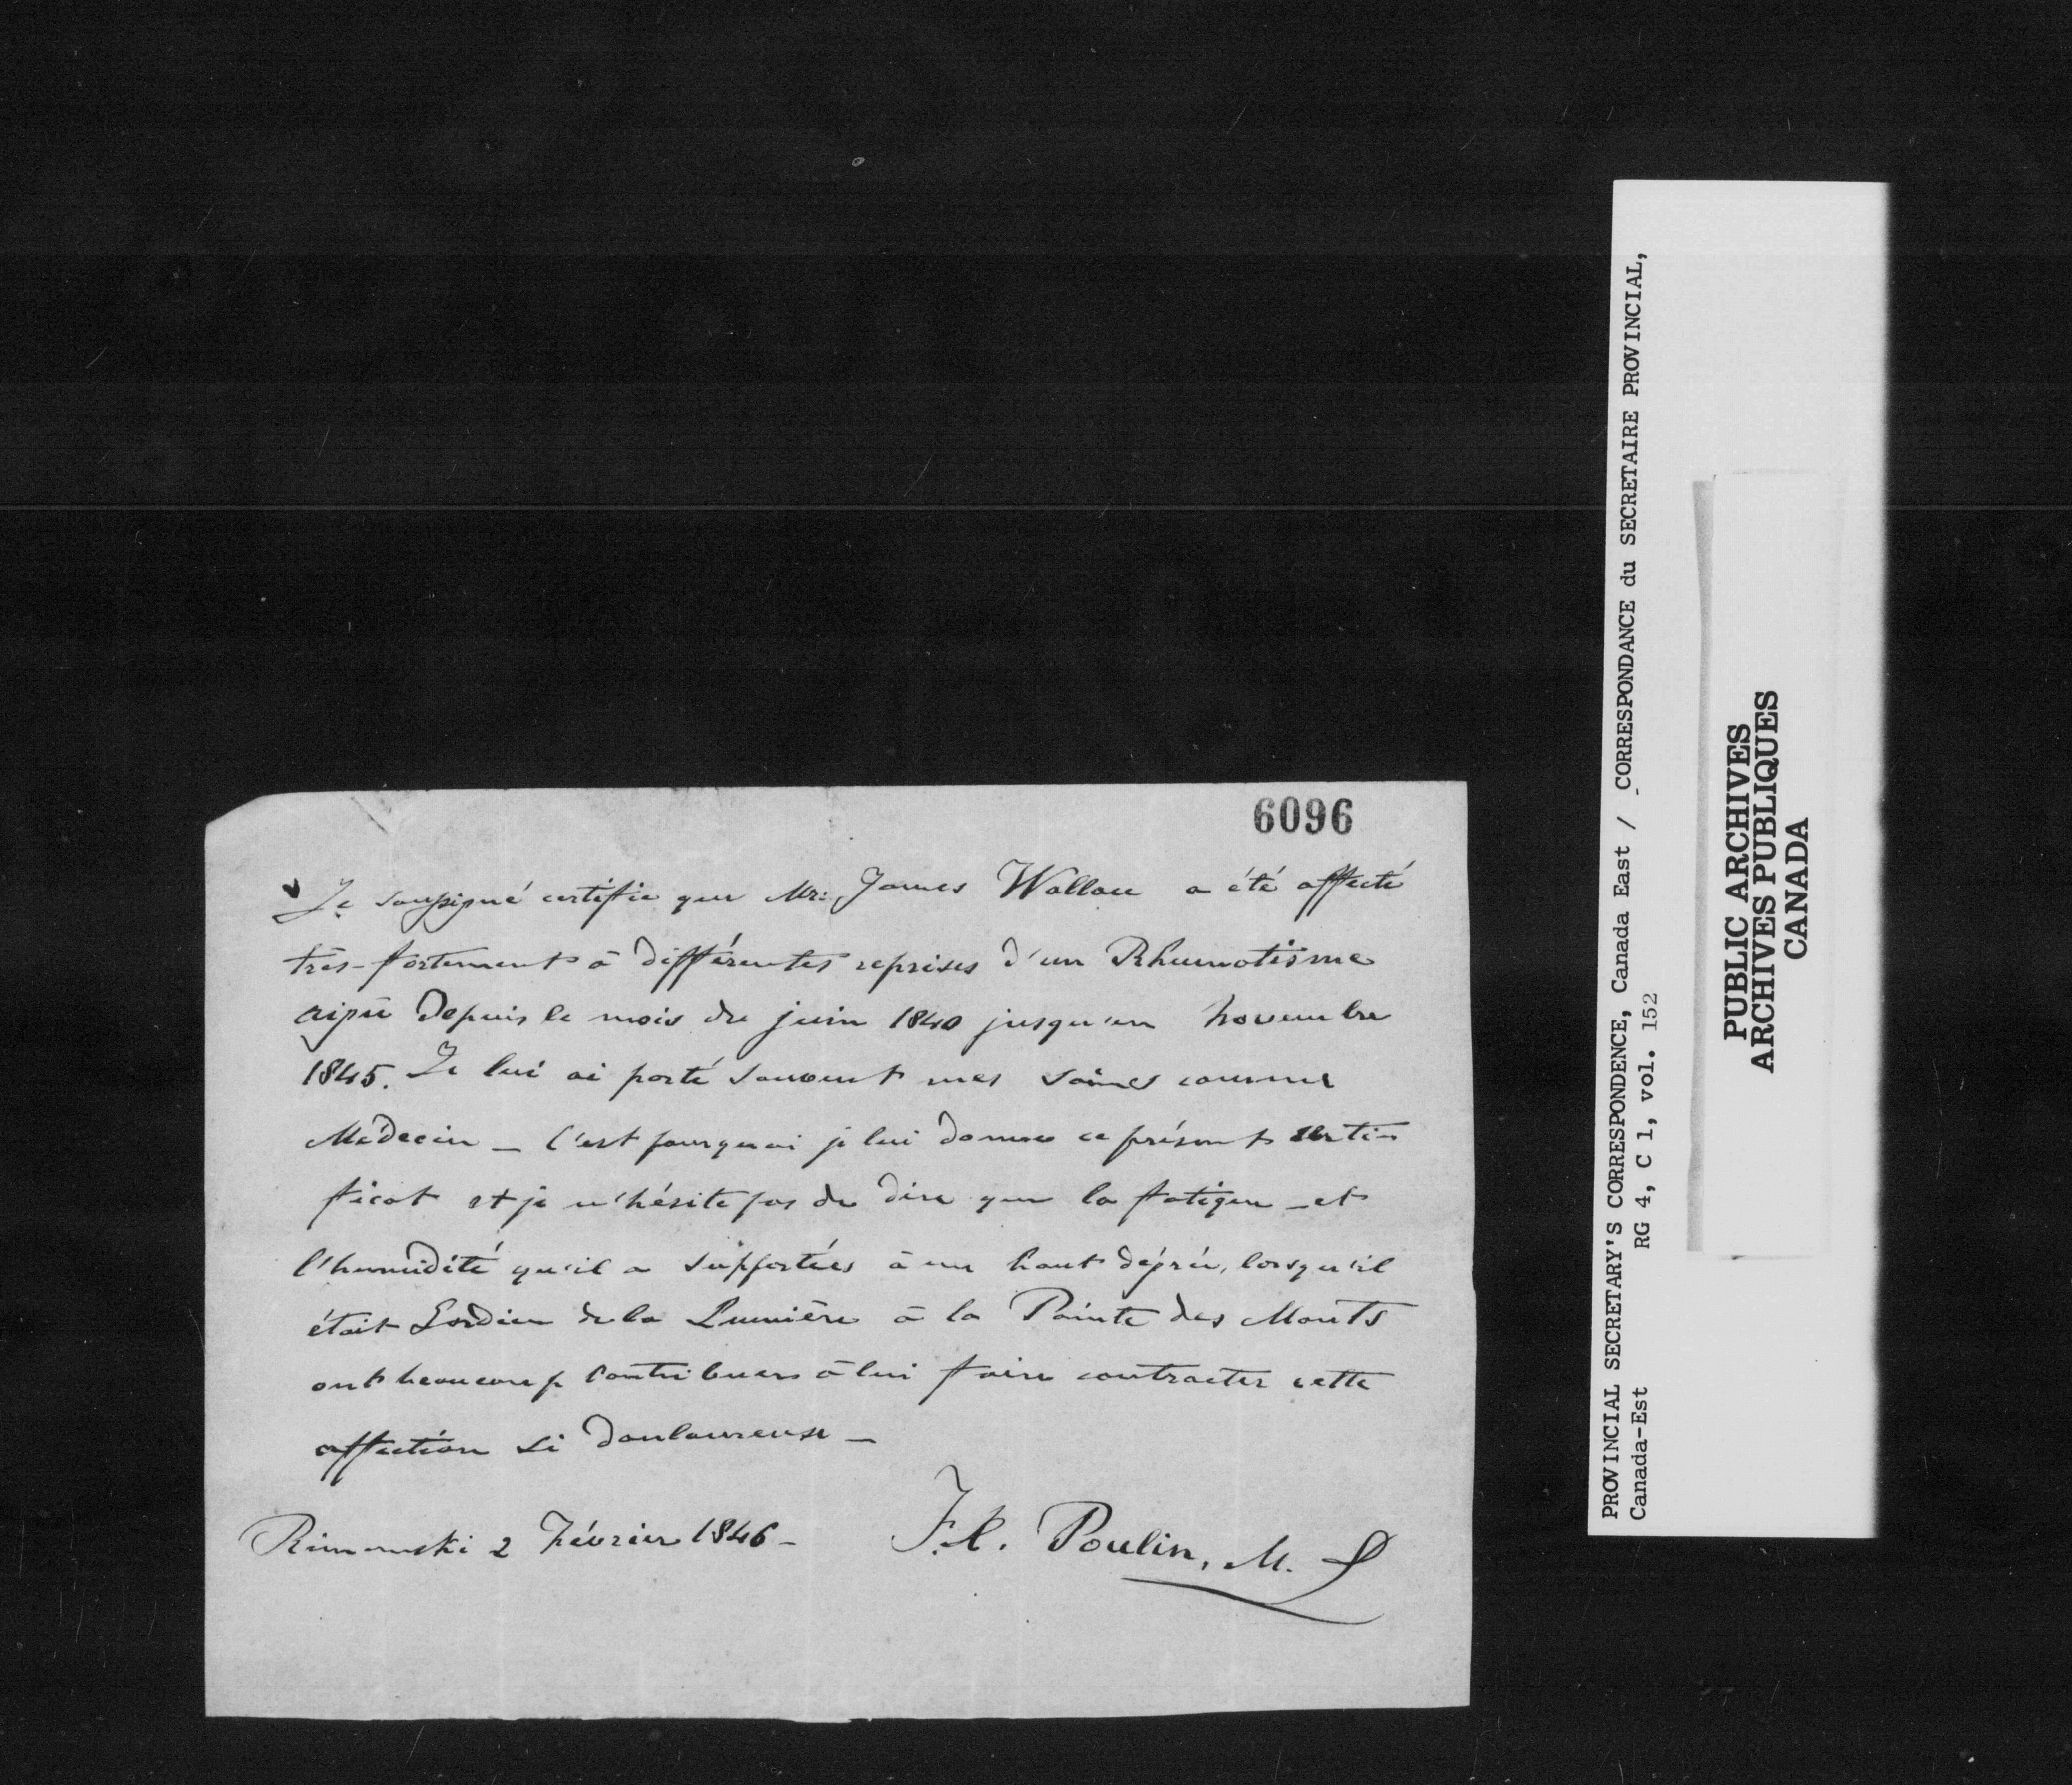 6096
Je soussigné certifie que Mr: James Wallace a été affecté
très-fortement à différentes reprises d'un Rhumatisme
aigü depuis le mois de juin 1840 jusqu'en novembre
1845. Je lui ai porté souvent mes soins comme
Médecin _ C'est pourquoi je lui donne ce présent certi=
ficat et je n'hésite pas de dire que la fatigue et
l'humidité qu'il a supportées à un haut dégré, lorsqu'il
était Gardien de la Lumière à la Pointe des Monts
ont beaucoup contribués à lui faire contracter cette
affection si douloureuse _
Rimouski 2 Février 1846 - Poulin, M.
PROVINCIAL SECRETARY'S CORRESPONDENCE, Canada East / CORRESPONDANCE du SECRETAIRE PROVINCIAL,
Canada-Est RG 4, C 1, vol. 152
PUBLIC ARCHIVES
ARCHIVES PUBLIQUES
CANADA